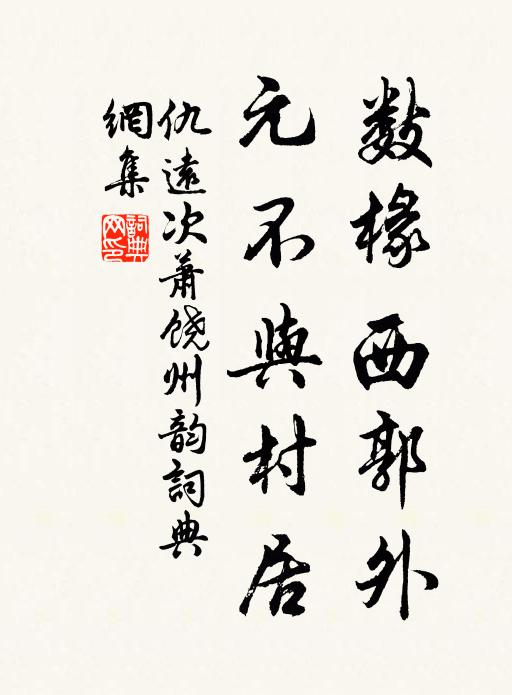 数椽西郭外
元不與村居
仇遠次萧饶州韵詞典
網集
詞典
网印